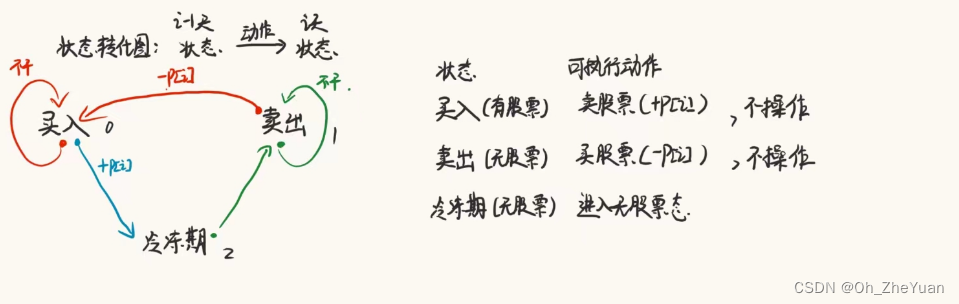 计天 认天
状态转代图： 状态 动作 状态
不干
-P[i]
不干.
买入 0
卖出 1
+P[i]
冷冻期 2
状态 可执行动作
买入(有股票) 卖股票(+P[i]) ，不操作
卖出(无股票) 买股票(-P[i]) ，不操作
冷冻期(无股票) 进入无股票态.
CSDN @Oh_ZheYuan